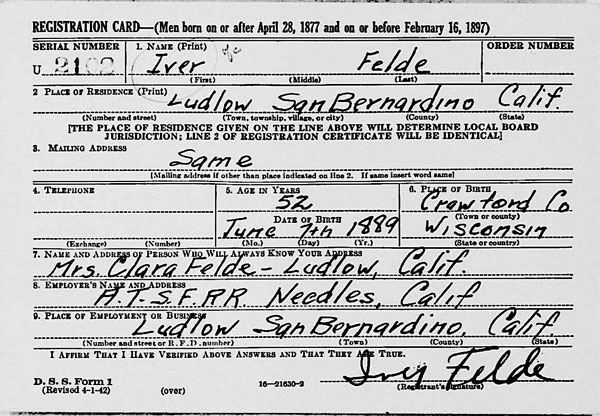 REGISTRATION CARD—(Men born on or after April 28, 1877 and on or before February 16, 1897)
SERIAL NUMBER 1. NAME (Print) ORDER NUMBER
U 2102 Iver Felde
(First) (Middle) (Last)
2. PLACE OF RESIDENCE (Print)
Ludlow San Bernardino Calif.
(Number and street) (Town, township, village, or city) (County) (State)
[THE PLACE OF RESIDENCE GIVEN ON THE LINE ABOVE WILL DETERMINE LOCAL BOARD
JURISDICTION; LINE 2 OF REGISTRATION CERTIFICATE WILL BE IDENTICAL]
3. MAILING ADDRESS
Same
[Mailing address if other than place indicated on line 2. If same insert word same]
4. TELEPHONE 5. AGE IN YEARS 6. PLACE OF BIRTH
52 Crawford Co
DATE OF BIRTH (Town or county)
June 7th 1889 Wisconsin
(Exchange) (Number) (Mo.) (Day) (Yr.) (State or country)
7. NAME AND ADDRESS OF PERSON WHO WILL ALWAYS KNOW YOUR ADDRESS
Mrs. Clara Felde - Ludlow, Calif.
8. EMPLOYER'S NAME AND ADDRESS
A.T.S.F.R.R. Needles, Calif
9. PLACE OF EMPLOYMENT OR BUSINESS
Ludlow San Bernardino. Calif.
(Number and street or R.F.D. number) (Town) (County) (State)
I AFFIRM THAT I HAVE VERIFIED ABOVE ANSWERS AND THAT THEY ARE TRUE.
Iver Felde
D. S. S. Form 1 (Registrant's signature)
(Revised 4-1-42) (over) 16—21630-2